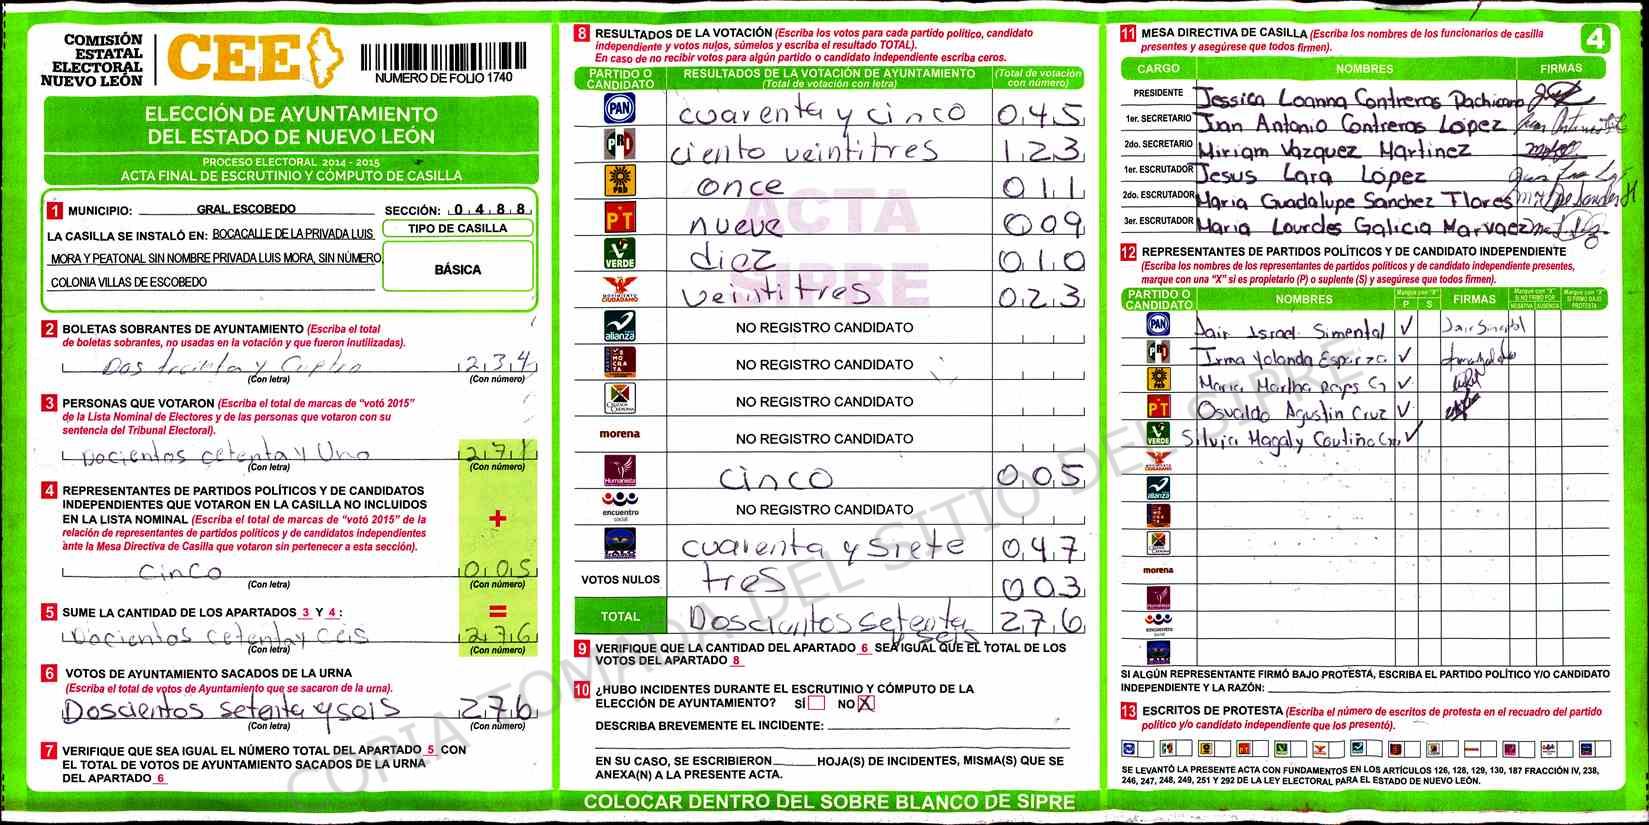 COMISIÓN
ESTATAL
ELECTORAL
NUEVO LEÓN
CEE
NUMERO DE FOLIO 1740
ELECCIÓN DE AYUNTAMIENTO
DEL ESTADO DE NUEVO LEÓN
PROCESO ELECTORAL 2014 - 2015
ACTA FINAL DE ESCRUTINIO Y CÓMPUTO DE CASILLA
1 MUNICIPIO: GRAL. ESCOBEDO SECCIÓN: 0 4 8 8
LA CASILLA SE INSTALÓ EN: BOCACALLE DE LA PRIVADA LUIS
MORA Y PEATONAL SIN NOMBRE PRIVADA LUIS MORA, SIN NÚMERO,
COLONIA VILLAS DE ESCOBEDO
TIPO DE CASILLA
BÁSICA
2 BOLETAS SOBRANTES DE AYUNTAMIENTO (Escriba el total
de boletas sobrantes, no usadas en la votación y que fueron inutilizadas).
2 3 4
(Con letra) (Con número)
3 PERSONAS QUE VOTARON (Escriba el total de marcas de "votó 2015"
de la Lista Nominal de Electores y de las personas que votaron con su
sentencia del Tribunal Electoral).
Docientos cetenta y Uno 2 7 1
(Con letra) (Con número)
4 REPRESENTANTES DE PARTIDOS POLÍTICOS Y DE CANDIDATOS
INDEPENDIENTES QUE VOTARON EN LA CASILLA NO INCLUIDOS
EN LA LISTA NOMINAL (Escriba el total de marcas de "votó 2015" de la
relación de representantes de partidos políticos y de candidatos independientes
ante la Mesa Directiva de Casilla que votaron sin pertenecer a esta sección).
+
cinco 0 0 5
(Con letra) (Con número)
5 SUME LA CANTIDAD DE LOS APARTADOS 3 Y 4 : =
Docientos cetenta y ceis 2 7 6
(Con letra) (Con número)
6 VOTOS DE AYUNTAMIENTO SACADOS DE LA URNA
(Escriba el total de votos de Ayuntamiento que se sacaron de la urna).
Doscientos setenta y seis 2 7 6
(Con letra) (Con número)
7 VERIFIQUE QUE SEA IGUAL EL NÚMERO TOTAL DEL APARTADO 5 CON
EL TOTAL DE VOTOS DE AYUNTAMIENTO SACADOS DE LA URNA
DEL APARTADO 6
8 RESULTADOS DE LA VOTACIÓN (Escriba los votos para cada partido político, candidato
independiente y votos nulos, súmelos y escriba el resultado TOTAL).
En caso de no recibir votos para algún partido o candidato independiente escriba ceros.
PARTIDO O CANDIDATO
RESULTADOS DE LA VOTACIÓN DE AYUNTAMIENTO
(Total de votación con letra)
(Total de votación con número)
PAN cuarenta y cinco 0 4 5
PRI ciento veintitres 1 2 3
PRD once 0 1 1
PT nueve 0 0 9
VERDE diez 0 1 0
MOVIMIENTO CIUDADANO veintitres 0 2 3
alianza NO REGISTRO CANDIDATO
DEMOCRATA NO REGISTRO CANDIDATO
CRUZADA CIUDADANA NO REGISTRO CANDIDATO
morena NO REGISTRO CANDIDATO
Humanista cinco 0 0 5
encuentro social NO REGISTRO CANDIDATO
cuarenta y siete 0 4 7
VOTOS NULOS tres 0 0 3
TOTAL Doscientos setenta y seis 2 7 6
ACTA
SIPRE
9 VERIFIQUE QUE LA CANTIDAD DEL APARTADO 6 SEA IGUAL QUE EL TOTAL DE LOS
VOTOS DEL APARTADO 8
10 ¿HUBO INCIDENTES DURANTE EL ESCRUTINIO Y CÓMPUTO DE LA
ELECCIÓN DE AYUNTAMIENTO? SÍ NO X
DESCRIBA BREVEMENTE EL INCIDENTE:
EN SU CASO, SE ESCRIBIERON HOJA(S) DE INCIDENTES, MISMA(S) QUE SE
ANEXA(N) A LA PRESENTE ACTA.
COLOCAR DENTRO DEL SOBRE BLANCO DE SIPRE
COPIA TOMADA DEL SITIO DEL SIPRE
11 MESA DIRECTIVA DE CASILLA (Escriba los nombres de los funcionarios de casilla
presentes y asegúrese que todos firmen).
4
CARGO NOMBRES FIRMAS
PRESIDENTE Jessica Loanna Contreras Pachicano
1er. SECRETARIO Juan Antonio Contreras López
2do. SECRETARIO Miriam Vazquez Martinez
1er. ESCRUTADOR Jesus Lara López
2do. ESCRUTADOR Maria Guadalupe Sanchez Flores
3er. ESCRUTADOR Maria Lourdes Galicia Marvaez
12 REPRESENTANTES DE PARTIDOS POLÍTICOS Y DE CANDIDATO INDEPENDIENTE
(Escriba los nombres de los representantes de partidos políticos y de candidato independiente presentes,
marque con una "X" si es propietario (P) o suplente (S) y asegúrese que todos firmen).
PARTIDO O CANDIDATO
NOMBRES
Marque con "X"
P S
FIRMAS
Marque con "X"
SI NO FIRMÓ POR
NEGATIVA AUSENCIA
Marque con "X"
SI FIRMÓ BAJO
PROTESTA
PAN Dair Israel Simental ✓
PRI Irma Yolanda Esparza ✓
PRD Maria Martha Reyes G ✓
PT Osvaldo Agustin Cruz ✓
VERDE Silvia Magaly ✓
MOVIMIENTO CIUDADANO
alianza
morena
Humanista
encuentro social
SI ALGÚN REPRESENTANTE FIRMÓ BAJO PROTESTA, ESCRIBA EL PARTIDO POLÍTICO Y/O CANDIDATO
INDEPENDIENTE Y LA RAZÓN:
13 ESCRITOS DE PROTESTA (Escriba el número de escritos de protesta en el recuadro del partido
político y/o candidato independiente que los presentó).
SE LEVANTÓ LA PRESENTE ACTA CON FUNDAMENTOS EN LOS ARTÍCULOS 126, 128, 129, 130, 187 FRACCIÓN IV, 238,
246, 247, 248, 249, 251 Y 292 DE LA LEY ELECTORAL PARA EL ESTADO DE NUEVO LEÓN.